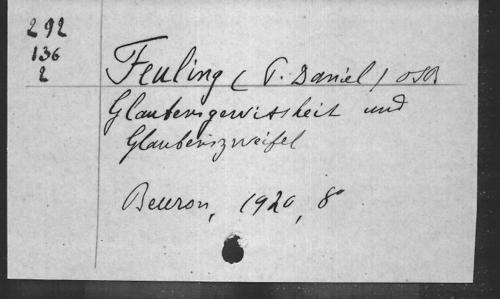 292
136
2
Feuling (P. Daniel) OSB.
Glaubensgewissheit und
Glaubenszweifel
Beuron, 1920, 8°